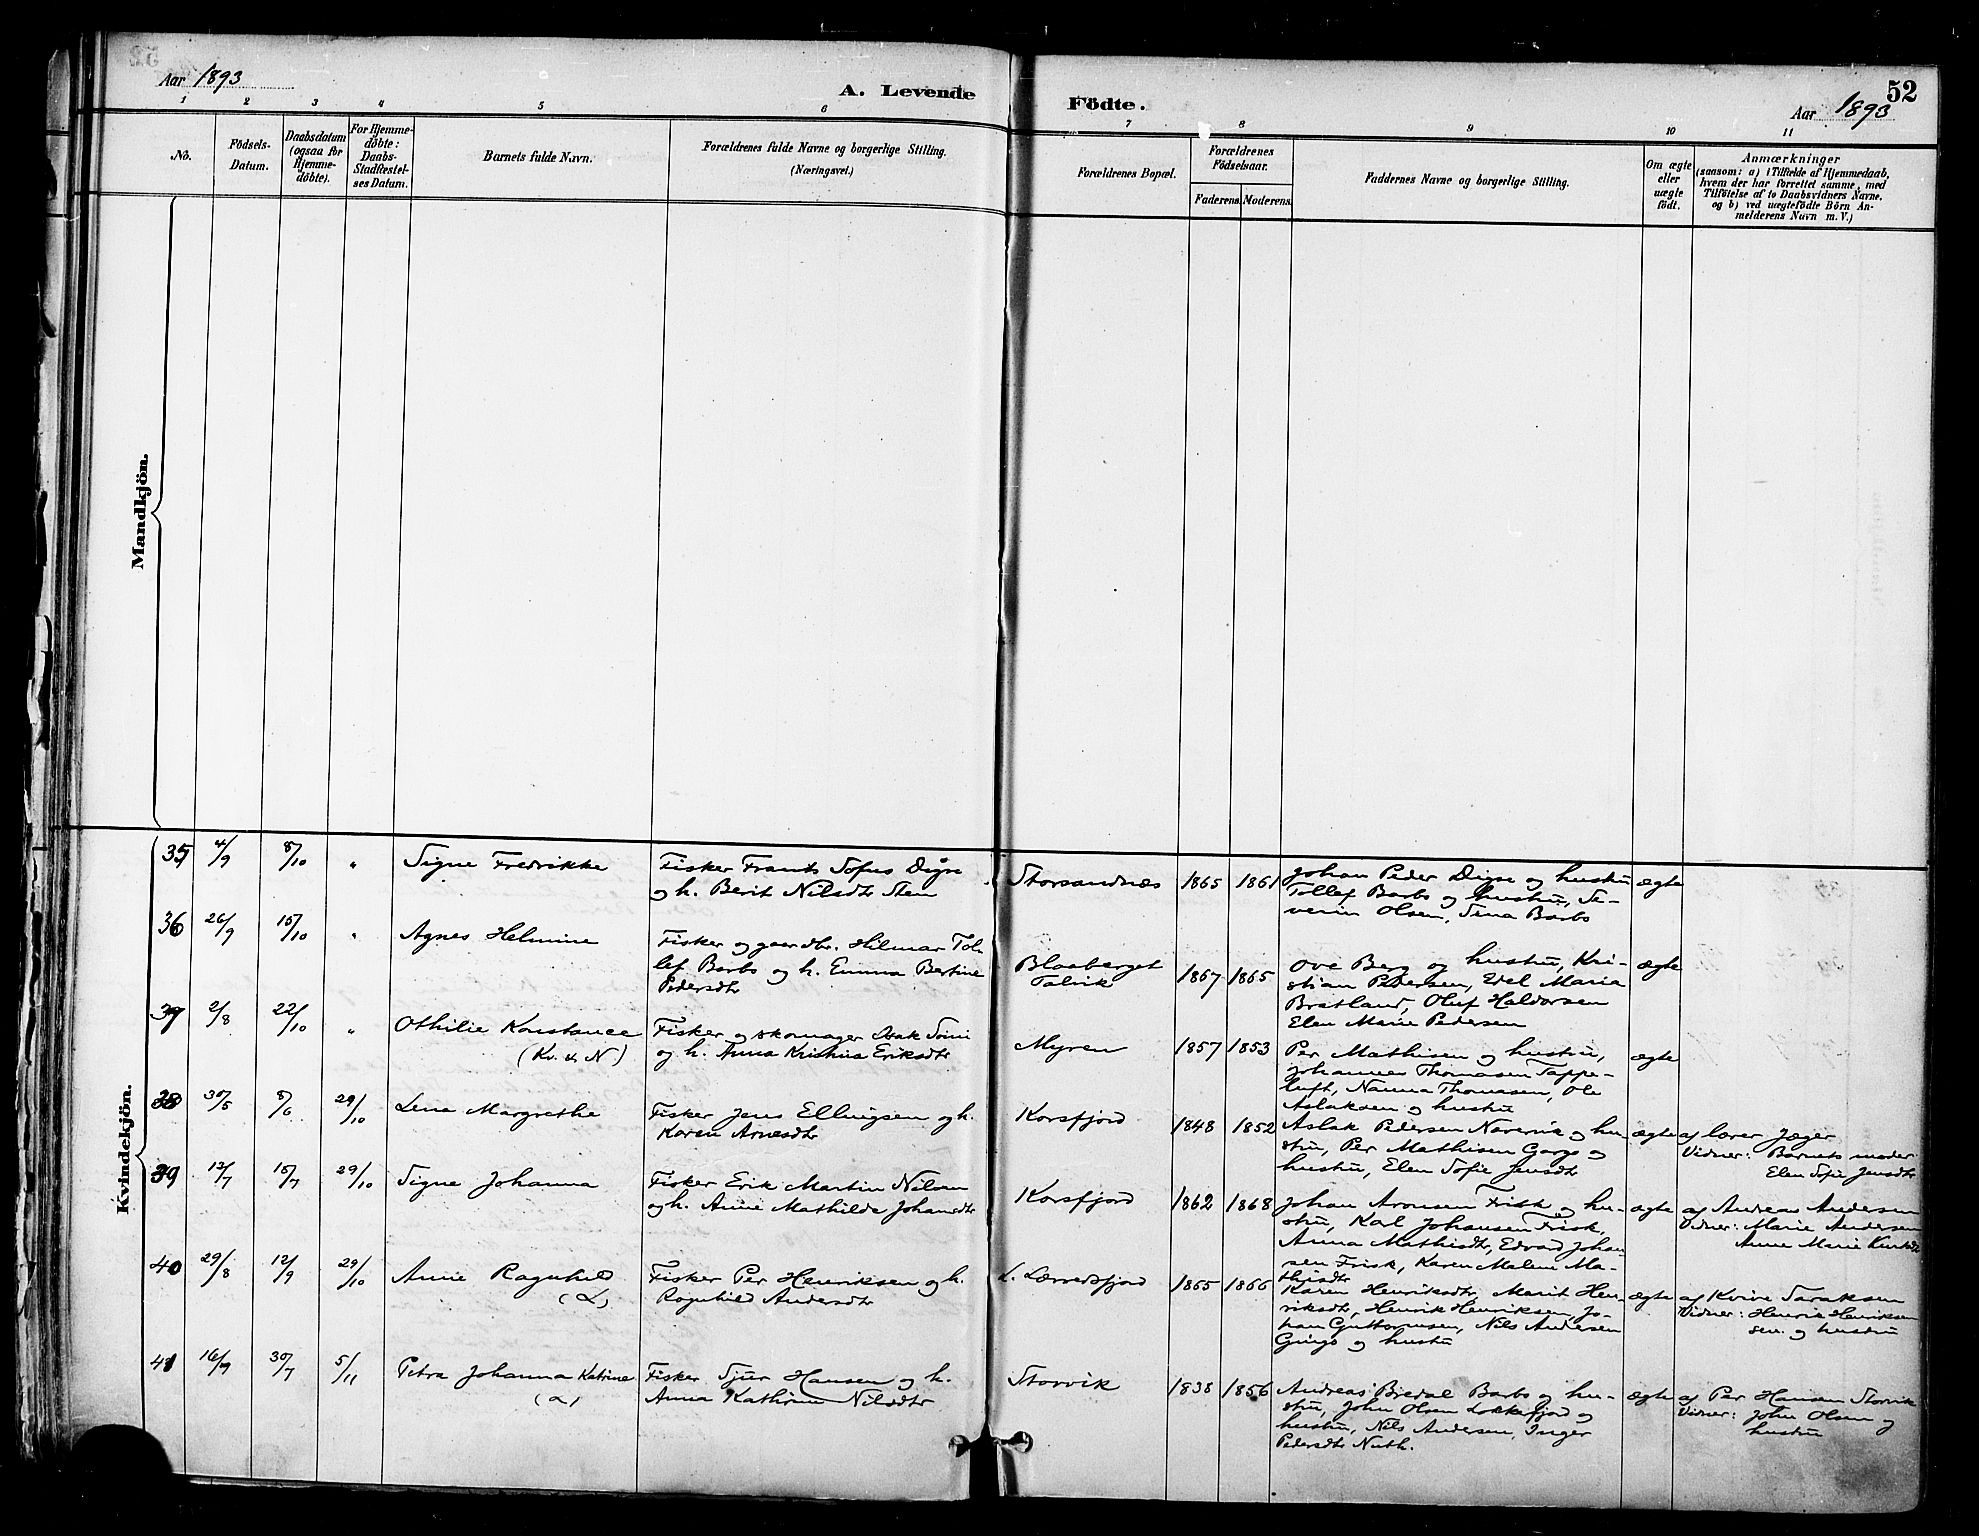 Aar 1893
A. Levende
Födte.
Aar 1893
52
1 2 3 4 5 6 7 8 9 10 11
No.
Födsels-
Datum.
Daabsdatum
(ogsaa for
Hjemme-
döbte).
For Hjemme-
döbte:
Daabs-
Stadfæstel-
ses Datum.
Barnets fulde Navn.
Forældrenes fulde Navne og borgerlige Stilling.
(Næringsvei.)
Forældrenes Bopæl.
Forældrenes
Födselsaar.
Faderens. Moderens.
Faddernes Navne og borgerlige Stilling.
Om ægte
eller
uægte
födt.
Anmærkninger
(saasom: a) i Tilfælde af Hjemmedaab,
hvem der har forrettet samme, med
Tilföielse af to Daabsvidners Navne,
og b) ved uægtefödte Börn An-
melderens Navn m. V.)
Mandkjön.
Kvindekjön.
35 4/9 8/10 " Signe Fredrikke
Fisker Frants Sofus Digre
og h. Berit Nilsdtr Sten
Storsandnæs 1865 1861
Johan Peder Digre og hustru
Tollef Barbo og hustru, Se-
verin Olsen, Sina Barbo
ægte
36 26/9 15/10 " Agnes Helmine
Fisker og gaardbr. Hilmar Tol-
lef Barbo og h. Emma Bertine
Pedersdtr
Blaaberget
Talvik
1867 1865
Ove Berg og hustru, Kri-
stian Pedersen, Edel Maria
Bratland, Oluf Haldorsen
Elen Marie Pedersen
ægte
37 2/8 22/10 " Othilie Konstance
(Kv. & N)
Fisker og skomager Isak Simi
og h. Anna Kristina Eriksdtr
Myren 1857 1853
Per Mathisen og hustru,
Johannes Thomasen Tappe-
luft, Nanna Thomasen, Ole
Aslaksen og hustru
ægte
38 30/5 8/6 29/10 Lena Margrethe
Fisker Jens Ellingsen og h.
Karen Arnesdtr
Korsfjord 1848 1852
Aslak Pedersen Navervik og hu-
stru, Per Mathisen Gargo og
hustru, Elen Sofie Jensdtr
ægte
af lærer Jæger
Vidner: Barnets moder
Elen Sofie Jensdtr
39 12/7 15/7 29/10 Signe Johanna
Fisker Erik Martin Nilsen
og h. Anne Mathilde Johansdtr
Korsfjord 1862 1868
Johan Aronsen Frisk og hu-
stru, Karl Johansen Frisk,
Anna Mathisdtr, Edvard Johan-
sen Frisk, Karen Malene Ma-
thisdtr
ægte
af Andreas Andersen
Vidner: Marie Andersen
Anne Marie
40 29/8 12/9 29/10 Anne Ragnhild
(L)
Fisker Per Henriksen og h.
Ragnhild Andersdtr
L. Lærredsfjord 1865 1866
Karen Henriksdtr, Marit Hen-
riksdtr, Henrik Henriksen, Jo-
han Guttormsen, Nils Andersen
Gingo og hustru
ægte
af Kvive Saraksen
Vidner: Henrik Henriksen
sen. og hustru
41 16/9 30/7 5/11 Petra Johanna Katrine
(L)
Fisker Sjur Hansen og h.
Anna Kathrine Nilsdtr
Storvik 1838 1856
Andreas Bredal Barbo og hu-
stru, John Olsen Lokkefjord og
hustru, Nils Andersen, Inger
Pedersdtr Nuth.
ægte
af Per Hansen Storvik
Vidner: John Olsen og
hustru